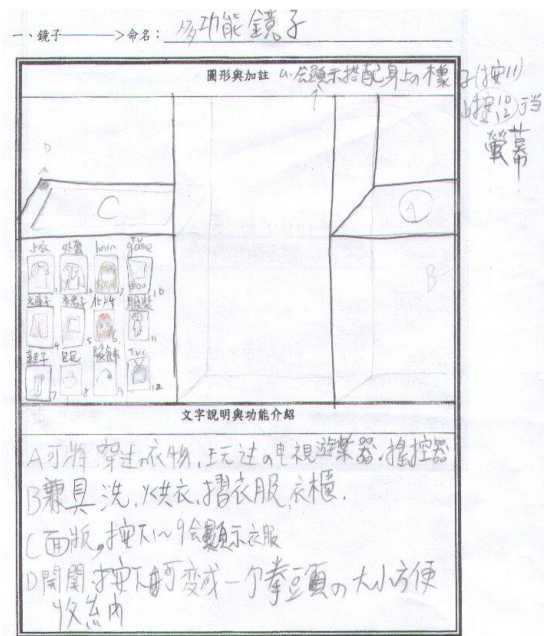 一、鏡子————>命名：多功能鏡子
圖形與加註 会顯示搭配身上の樣子(按11)
按10 12 当
螢幕
D
C
A
B
上衣 外套 hair game
1 2 3 10
4 5 6 11
鞋子 包包 髮飾 TV
7 8 9 12
文字說明與功能介紹
A可將穿过の衣物、玩过の电視遊樂器、搖控器
B兼具洗、烘衣、摺衣服、衣櫃.
C面版。按1~9会顯示衣服
D開關 按下可変成一个拳頭の大小方便
收納